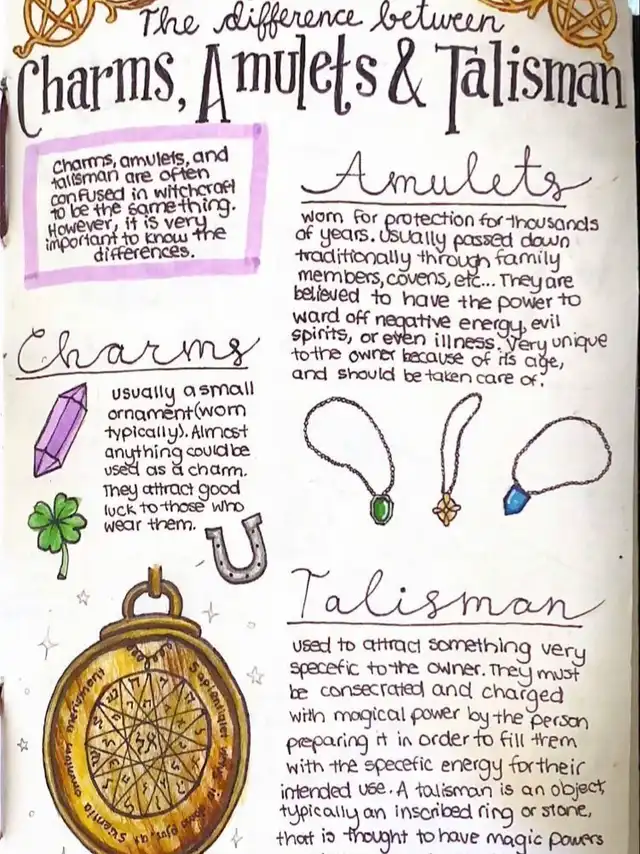 The difference between
Charms, Amulets & Talisman
Charms, amulets, and
talisman are often
confused in witchcraft
to be the same thing.
However, it is very
important to know the
differences.
Amulets
worn for protection for thousands
of years. Usually passed down
traditionally through family
members, covens, etc... They are
believed to have the power to
ward off negative energy, evil
spirits, or even illness. Very unique
to the owner because of its age,
and should be taken care of.
Charms
usually a small
ornament (worn
typically). Almost
anything could be
used as a charm.
They attract good
luck to those who
wear them.
Talisman
used to attract something very
specefic to the owner. They must
be consecrated and charged
with magical power by the person
preparing it in order to fill them
with the specefic energy for their
intended use. A talisman is an object,
typically an inscribed ring or stone,
that is thought to have magic powers